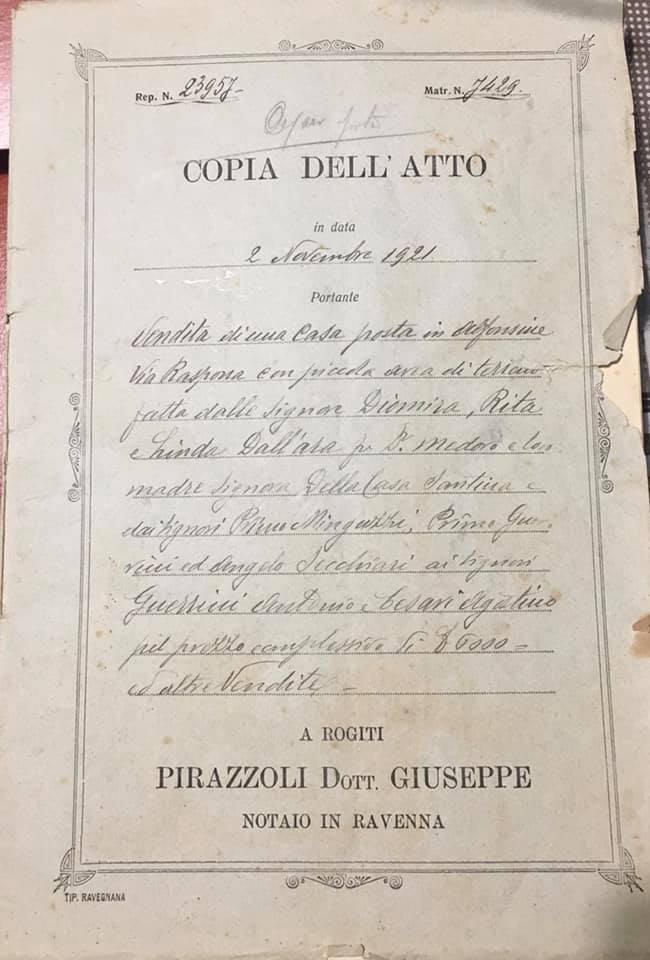 Rep. N. 23957- Matr. N. 7429.
COPIA DELL'ATTO
in data
2 Novembre 1921
Portante
Vendita di una Casa posta in Alfonsine
Via Raspona con piccola area di terreno
fatta dalle Signore Diomira, Rita
e Linda Dall'ara fu Medoro e
madre Signora Della Casa Santina e
dai Signori Minguzzi, Primo Guer-
rini ed Angelo Secchiari ai Signori
Guerrini Antonio e Cesari Agatino
pel prezzo complessivo di £ 6000 =
ed altre Vendite -
A ROGITI
PIRAZZOLI DOTT. GIUSEPPE
NOTAIO IN RAVENNA
TIP. RAVEGNANA